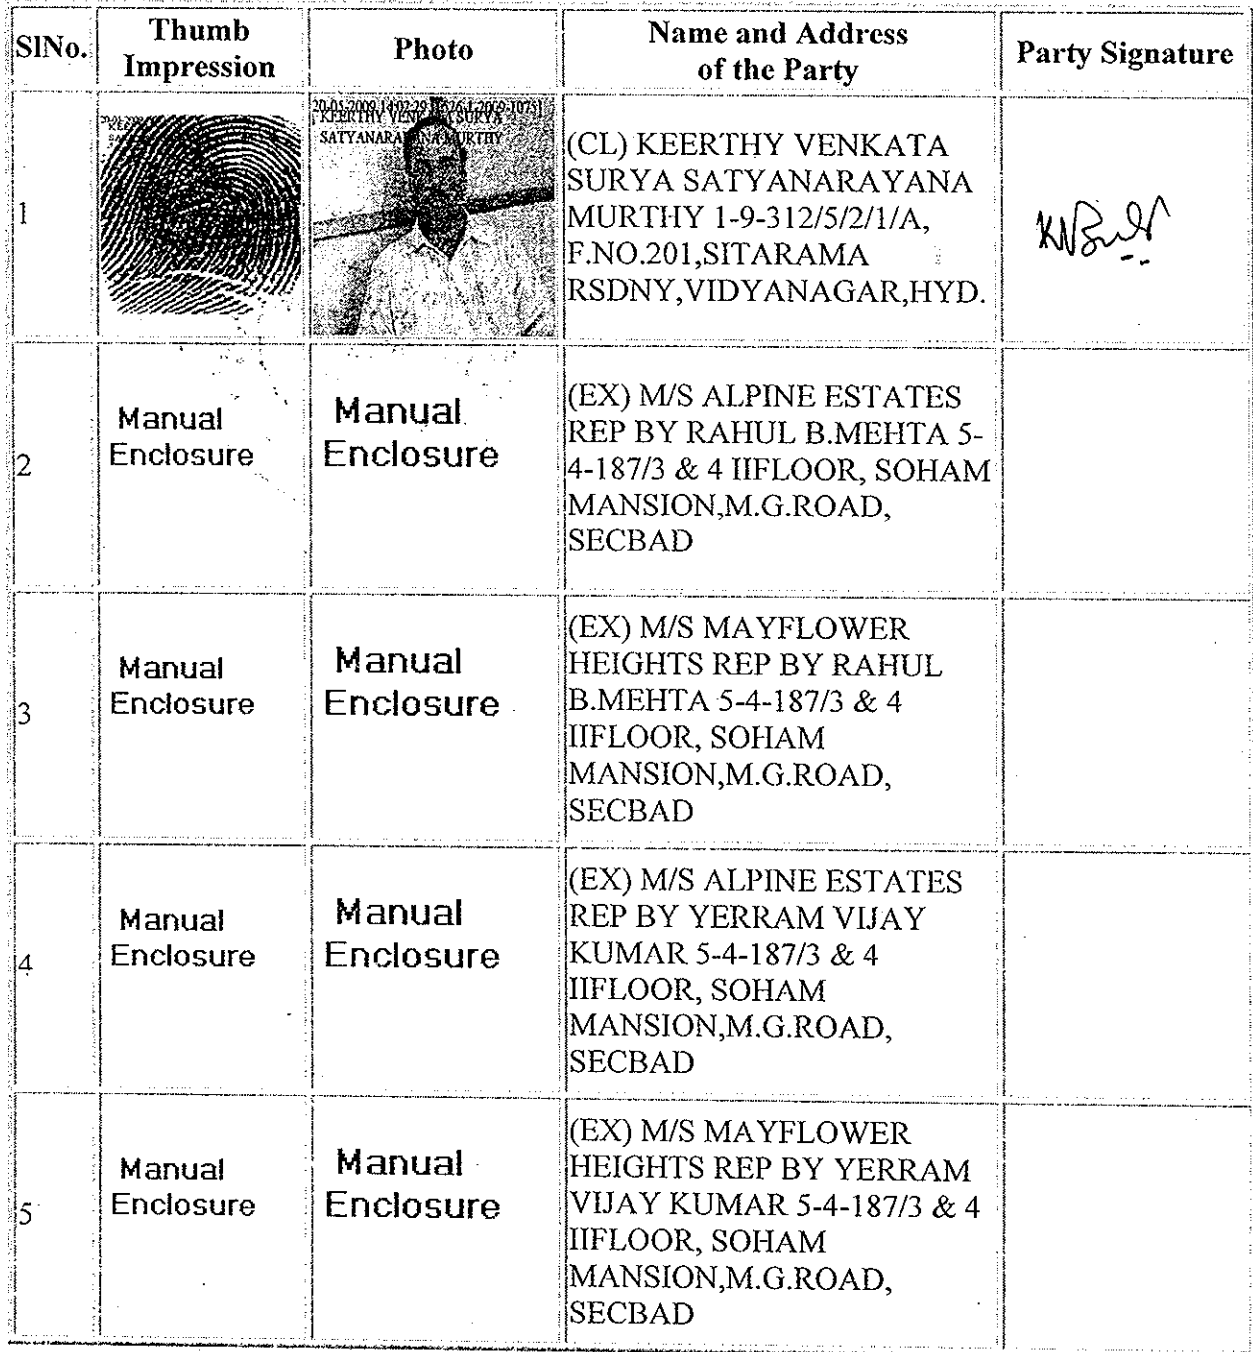 SlNo.
Thumb
Impression
Photo
Name and Address
of the Party
Party Signature
1
SATYANARAYANA MURTHY
(CL) KEERTHY VENKATA
SURYA SATYANARAYANA
MURTHY 1-9-312/5/2/1/A,
F.NO.201,SITARAMA
RSDNY,VIDYANAGAR,HYD.
2
Manual
Enclosure
Manual
Enclosure
(EX) M/S ALPINE ESTATES
REP BY RAHUL B.MEHTA 5-
4-187/3 & 4 IIFLOOR, SOHAM
MANSION,M.G.ROAD,
SECBAD
3
Manual
Enclosure
Manual
Enclosure
(EX) M/S MAYFLOWER
HEIGHTS REP BY RAHUL
B.MEHTA 5-4-187/3 & 4
IIFLOOR, SOHAM
MANSION,M.G.ROAD,
SECBAD
4
Manual
Enclosure
Manual
Enclosure
(EX) M/S ALPINE ESTATES
REP BY YERRAM VIJAY
KUMAR 5-4-187/3 & 4
IIFLOOR, SOHAM
MANSION,M.G.ROAD,
SECBAD
5
Manual
Enclosure
Manual
Enclosure
(EX) M/S MAYFLOWER
HEIGHTS REP BY YERRAM
VIJAY KUMAR 5-4-187/3 & 4
IIFLOOR, SOHAM
MANSION,M.G.ROAD,
SECBAD